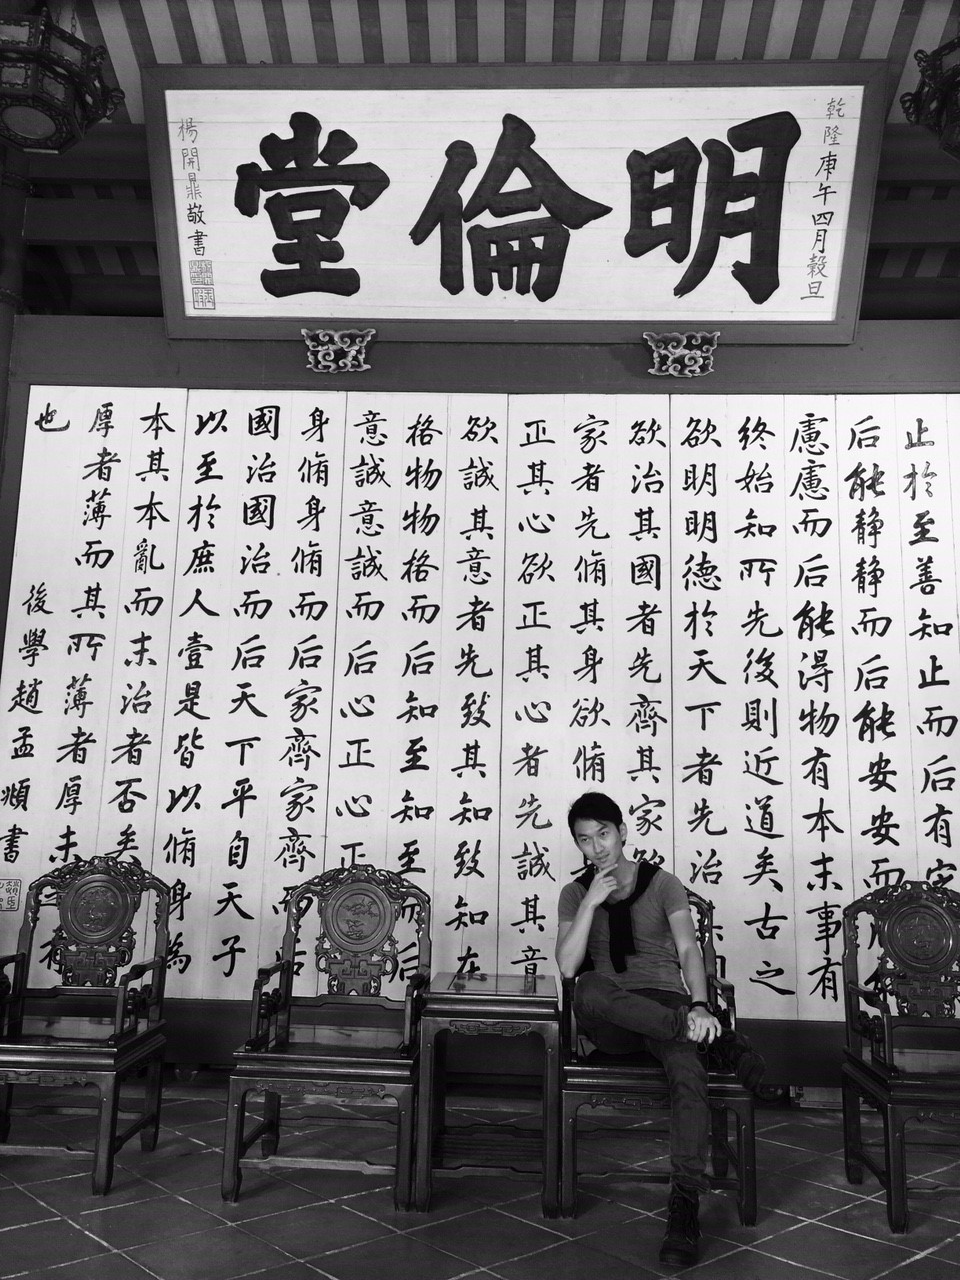 明倫堂
乾隆庚午四月穀旦
楊開鼎敬書
止於至善知止而后有定
后能静静而后能安安而后能
慮慮而后能得物有本末事有
終始知所先後則近道矣古之
欲明明德於天下者先治其國
欲治其國者先齊其家欲
家者先脩其身欲脩
正其心欲正其心者先誠其意
欲誠其意者先致其知致知在
格物物格而后知至知至而后
意誠意誠而后心正心正
身脩身脩而后家齊家齊而后
國治國治而后天下平自天子
以至於庶人壹是皆以脩身為
本其本亂而末治者否矣
厚者薄而其所薄者厚未之有
也
後學趙孟頫書